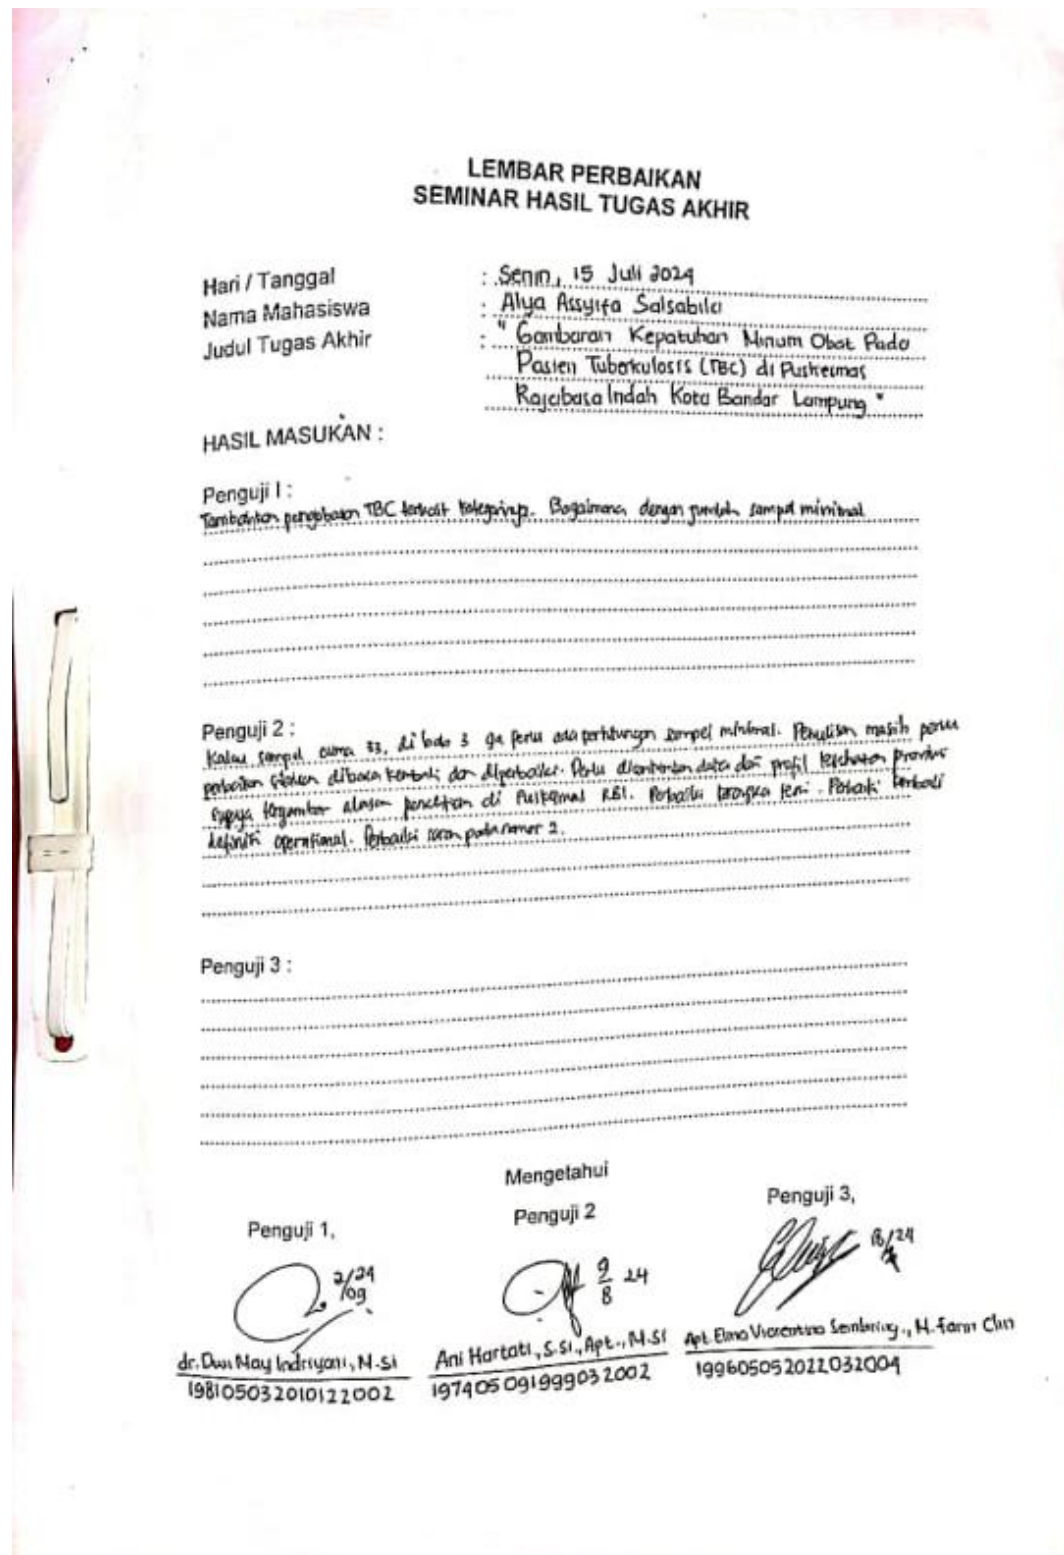 LEMBAR PERBAIKAN
SEMINAR HASIL TUGAS AKHIR
Hari / Tanggal : Senin, 15 Juli 2024
Nama Mahasiswa : Alya Assyifa Salsabila
Judul Tugas Akhir : " Gambaran Kepatuhan Minum Obat Pada
Pasien Tuberkulosis (TBC) di Puskesmas
Rajabasa Indah Kota Bandar Lampung "
HASIL MASUKAN :
Penguji I :
Tambahkan pengobatan TBC terkait kategorinya. Bagaimana dengan jumlah sampel minimal
Penguji 2 :
Kalau sampel cuma 33, di bab 3 ga perlu ada perhitungan sampel minimal. Penulisan masih perlu
perbaikan silakan dibaca kembali dan diperbaiki. Perlu dicantumkan data dari profil kesehatan provinsi
supaya tergambar alasan penelitian di Puskesmas RBI. Perbaiki kerangka teori. Perbaiki kembali
definisi operasional. Perbaiki saran pada nomor 2.
Penguji 3 :
Mengetahui
Penguji 1, Penguji 2 Penguji 3,
2/24
/09
9/8 24
/24
dr. Dwi May Indriyani, M.Si Ani Hartati, S.Si., Apt., M.Si Apt. Elma Viorentina Sembiring., M. Farm Clin
198105032010122002 197405091999032002 199605052022032004